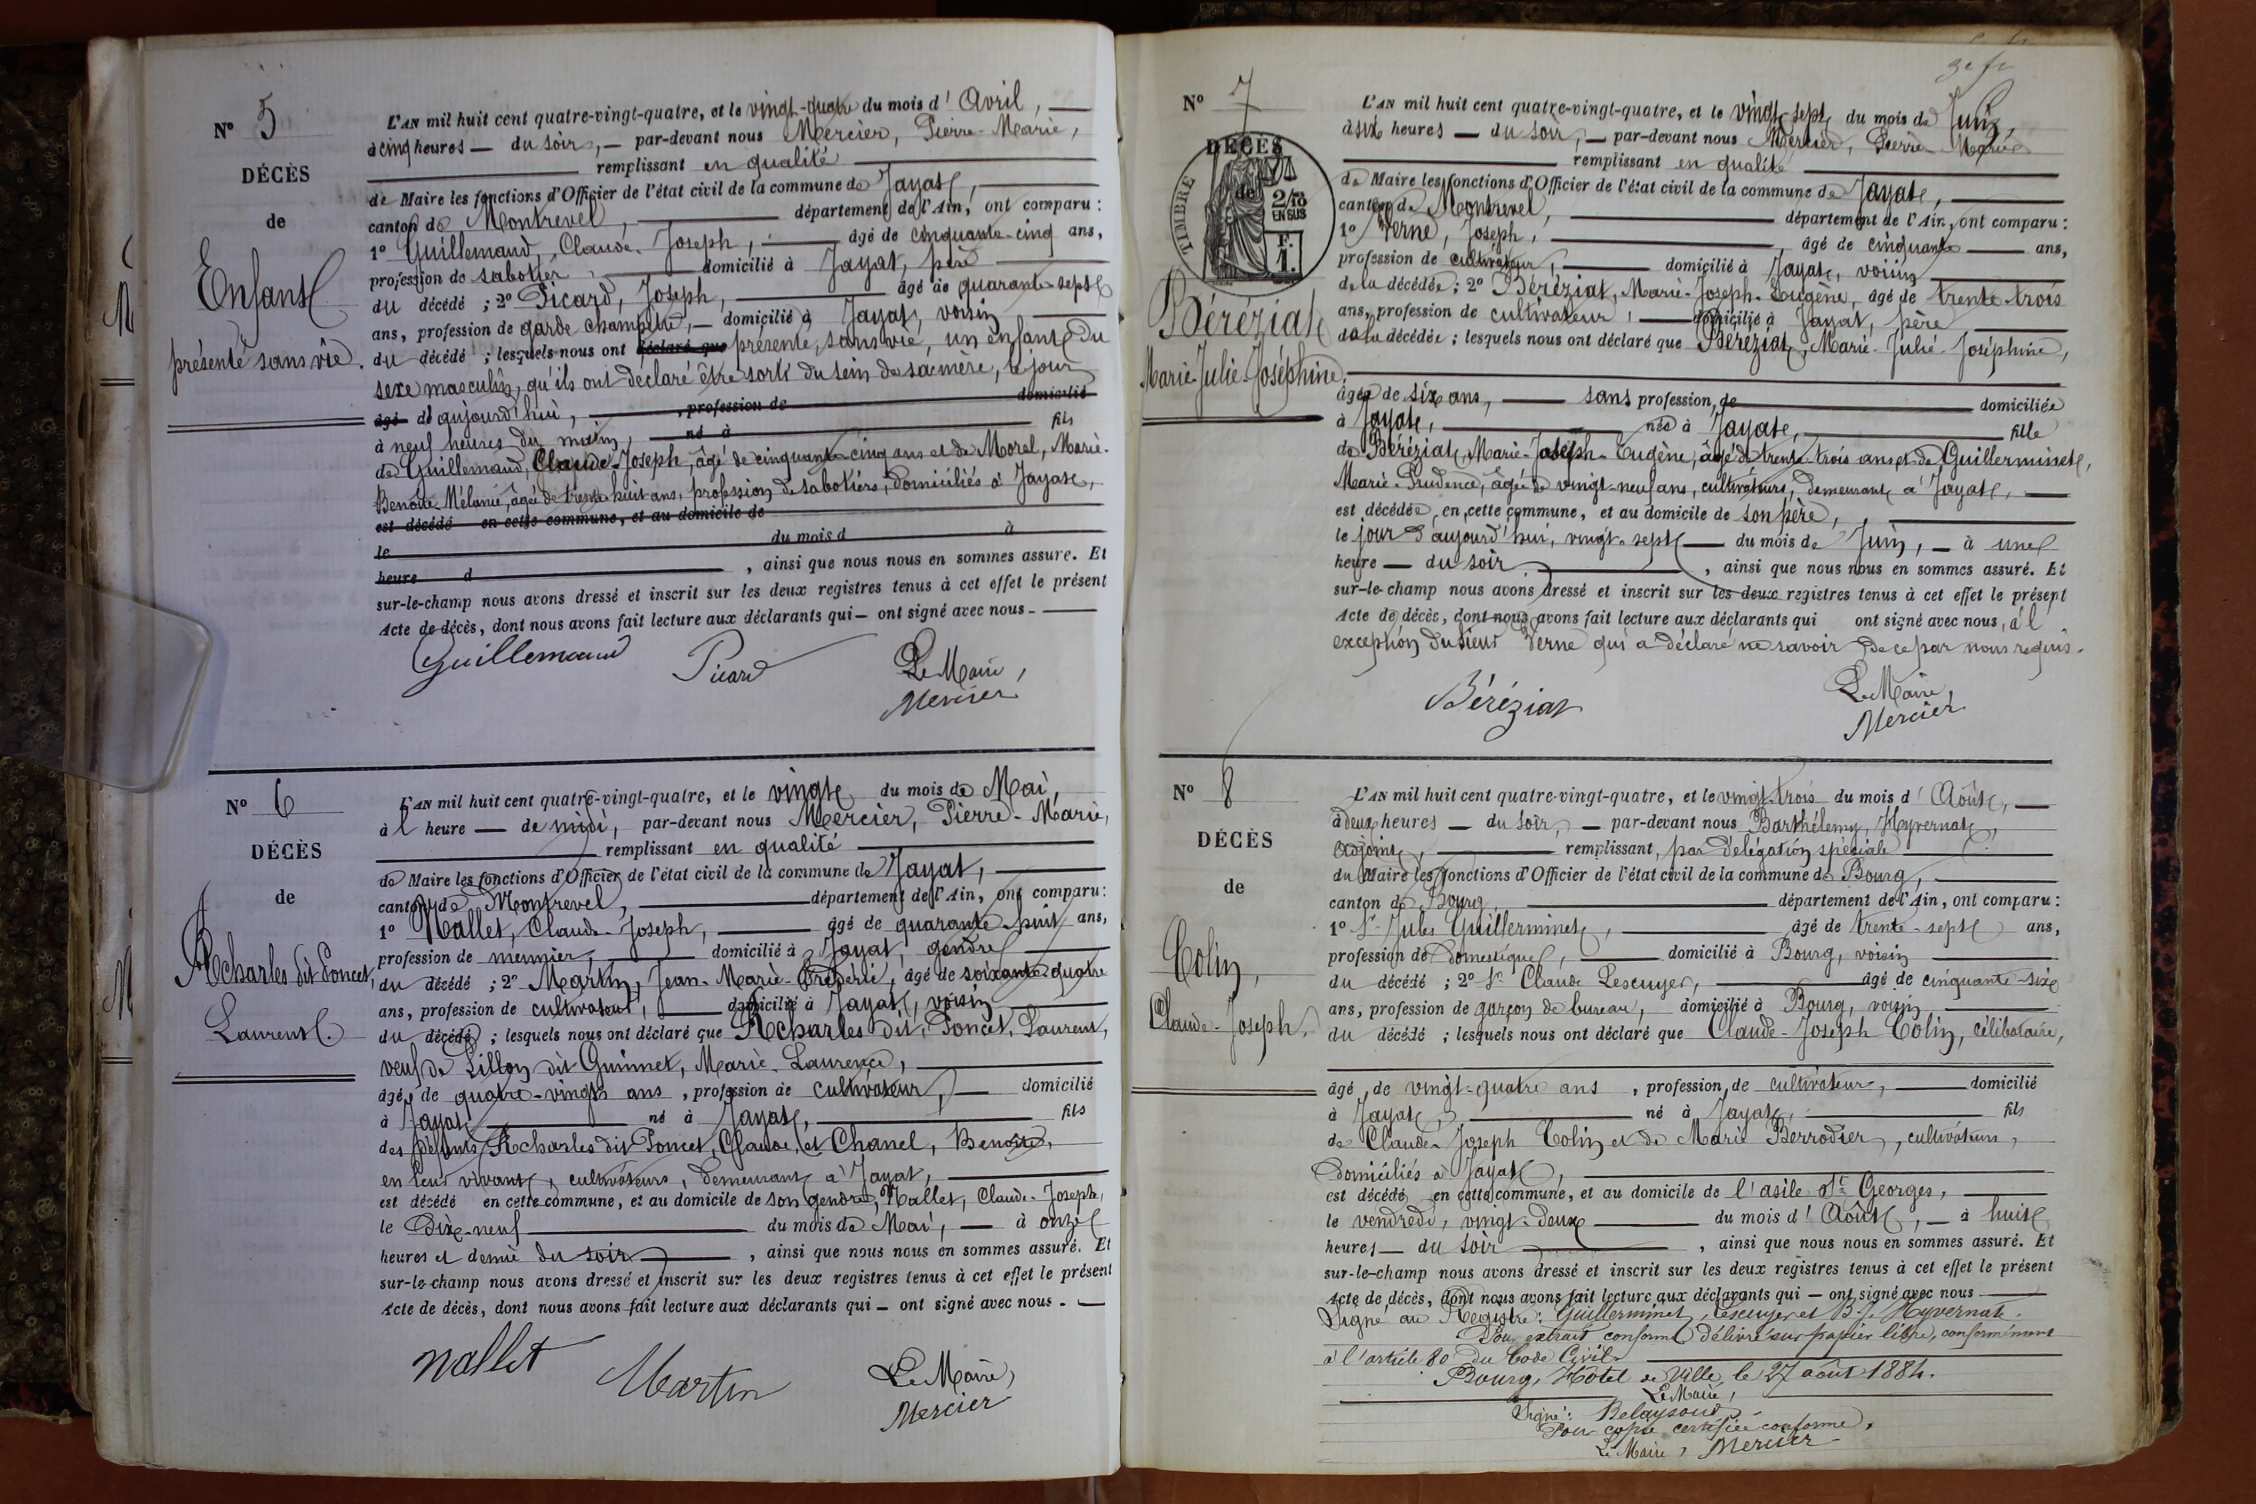 N° 5
DÉCÈS
de
Enfant
présenté sans vie.
L'AN mil huit cent quatre-vingt-quatre, et le vingt-quatre du mois d'Avril,
à cinq heures du soir, par-devant nous Mercier, Pierre-Marie,
remplissant en qualité
de Maire les fonctions d'Officier de l'état civil de la commune de Jayat,
canton de Montrevel, département de l'Ain, ont comparu :
1° Guillemaud, Claude-Joseph, âgé de cinquante-cinq ans,
profession de sabotier, domicilié à Jayat, père
du décédé ; 2° Picard, Joseph, âgé de quarante-sept
ans, profession de garde champêtre, domicilié à Jayat, voisin
du décédé ; lesquels nous ont déclaré que présenté, sans vie, un enfant du
sexe masculin, qu'ils ont déclaré être sorti du sein de sa mère, le jour
âgé d'aujourd'hui, , profession de domicilié
à neuf heures du matin, né à fils
de Guillemaud, Claude-Joseph, âgé de cinquante-cinq ans et de Morel, Marie-
Benoite Mélanie, âgée de trente huit ans, profession de sabotiers, domiciliés à Jayat,
est décédé en cette commune, et au domicile de
le du mois d à
heure d , ainsi que nous nous en sommes assuré. Et
sur-le-champ nous avons dressé et inscrit sur les deux registres tenus à cet effet le présent
Acte de décès, dont nous avons fait lecture aux déclarants qui ont signé avec nous.
Guillemaud Picard Le Maire,
Mercier
N° 6
DÉCÈS
de
Récharles dit Poncet,
Laurent.
L'AN mil huit cent quatre-vingt-quatre, et le vingt du mois de Mai,
à l'heure de midi, par-devant nous Mercier, Pierre-Marie,
remplissant en qualité
de Maire les fonctions d'Officier de l'état civil de la commune de Jayat,
canton de Montrevel, département de l'Ain, ont comparu :
1° Nallet, Claude-Joseph, âgé de quarante-huit ans,
profession de meunier, domicilié à Jayat, gendre
du décédé ; 2° Martin, Jean-Marie-, âgé de soixante-quatre
ans, profession de cultivateur, domicilié à Jayat, voisin
du décédé ; lesquels nous ont déclaré que Récharles dit Poncet, Laurent,
veuf de Pillon dit Guimet, Marie-Laurence,
âgé de quatre-vingts ans , profession de cultivateur, domicilié
à Jayat né à Jayat, fils
des défunts Récharles dit Poncet, Claude, et Chanel, Benoite,
en leur vivant, cultivateurs, demeurant à Jayat,
est décédé en cette commune, et au domicile de son gendre, Nallet, Claude-Joseph,
le dix-neuf du mois de Mai, à onze
heures et demie du soir , ainsi que nous nous en sommes assuré. Et
sur-le-champ nous avons dressé et inscrit sur les deux registres tenus à cet effet le présent
Acte de décès, dont nous avons fait lecture aux déclarants qui ont signé avec nous.
Nallet Martin Le Maire,
Mercier
N° 7
DÉCÈS
de
TIMBRE
2/10
EN SUS
F.
1.
Béréziat
Marie-Julie-Joséphine.
L'AN mil huit cent quatre-vingt-quatre, et le vingt-sept du mois de Juin,
à six heures du soir, par-devant nous Mercier, Pierre-Marie
remplissant en qualité
de Maire les fonctions d'Officier de l'état civil de la commune de Jayat,
canton de Montrevel, département de l'Ain, ont comparu :
1° Verne, Joseph, âgé de cinquante ans,
profession de cultivateur, domicilié à Jayat, voisin
de la décédée ; 2° Béréziat, Marie-Joseph-Eugène, âgé de trente trois
ans, profession de cultivateur, domicilié à Jayat, père
de la décédée ; lesquels nous ont déclaré que Béréziat, Marie-Julie-Joséphine,
âgée de six ans, sans profession, de domiciliée
à Jayat, née à Jayat, fille
de Béréziat, Marie-Joseph-Eugène, âgé de trente-trois ans et de Guillerminet,
Marie-Prudence, âgée de vingt-neuf ans, cultivateurs, demeurant à Jayat,
est décédée, en cette commune, et au domicile de son père,
le jour d'aujourd'hui, vingt-sept du mois de Juin, à une
heure du soir , ainsi que nous nous en sommes assuré. Et
sur-le-champ nous avons dressé et inscrit sur les deux registres tenus à cet effet le présent
Acte de décès, dont nous avons fait lecture aux déclarants qui ont signé avec nous, à l'
exception du sieur Verne qui a déclaré ne savoir de ce par nous requis.
Béréziat Le Maire,
Mercier
N° 8
DÉCÈS
de
Colin,
Claude-Joseph.
L'AN mil huit cent quatre-vingt-quatre, et le vingt-trois du mois d'Août,
à deux heures du soir, par-devant nous Barthélemy, Hyvernat,
adjoint, remplissant, par délégation spéciale
du Maire les fonctions d'Officier de l'état civil de la commune de Bourg,
canton de Bourg, département de l'Ain, ont comparu :
1° Sr Jules Guillerminet, âgé de trente-sept ans,
profession de domestique, domicilié à Bourg, voisin
du décédé ; 2° Sr Claude Lescuyer, âgé de cinquante-six
ans, profession de garçon de bureau, domicilié à Bourg, voisin
du décédé ; lesquels nous ont déclaré que Claude-Joseph Colin, célibataire,
âgé de vingt-quatre ans , profession de cultivateur, domicilié
à Jayat, né à Jayat, fils
de Claude-Joseph Colin et de Marie Berrodier, cultivateurs,
domiciliés à Jayat,
est décédé en cette commune, et au domicile de l'asile St Georges,
le vendredi, vingt-deux du mois d'Août, à huit
heures du soir , ainsi que nous nous en sommes assuré. Et
sur-le-champ nous avons dressé et inscrit sur les deux registres tenus à cet effet le présent
Acte de décès, dont nous avons fait lecture aux déclarants qui ont signé avec nous
Signé au Registre : Guillerminet, Lescuyer et B.J. Hyvernat.
Pour extrait conforme délivré sur papier libre, conformément
à l'article 80 du Code Civil.
Bourg, Hôtel de Ville, le 27 août 1884.
Le Maire,
Signé : Belaysoud
Pour copie certifiée conforme,
Le Maire, Mercier